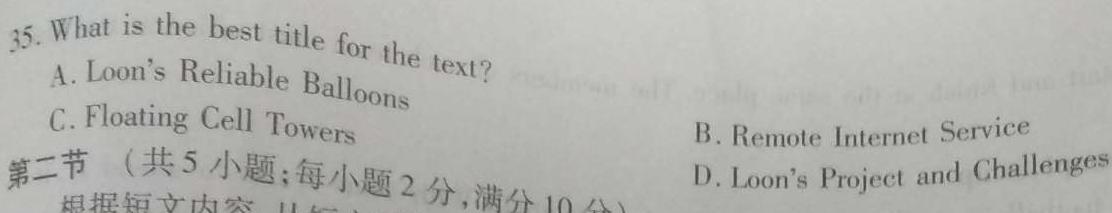 35. What is the best title for the text?
A. Loon's Reliable Balloons
B. Remote Internet Service
C. Floating Cell Towers
D. Loon's Project and Challenges
第二节 (共5小题;每小题2分,满分10分)
根据短文内容